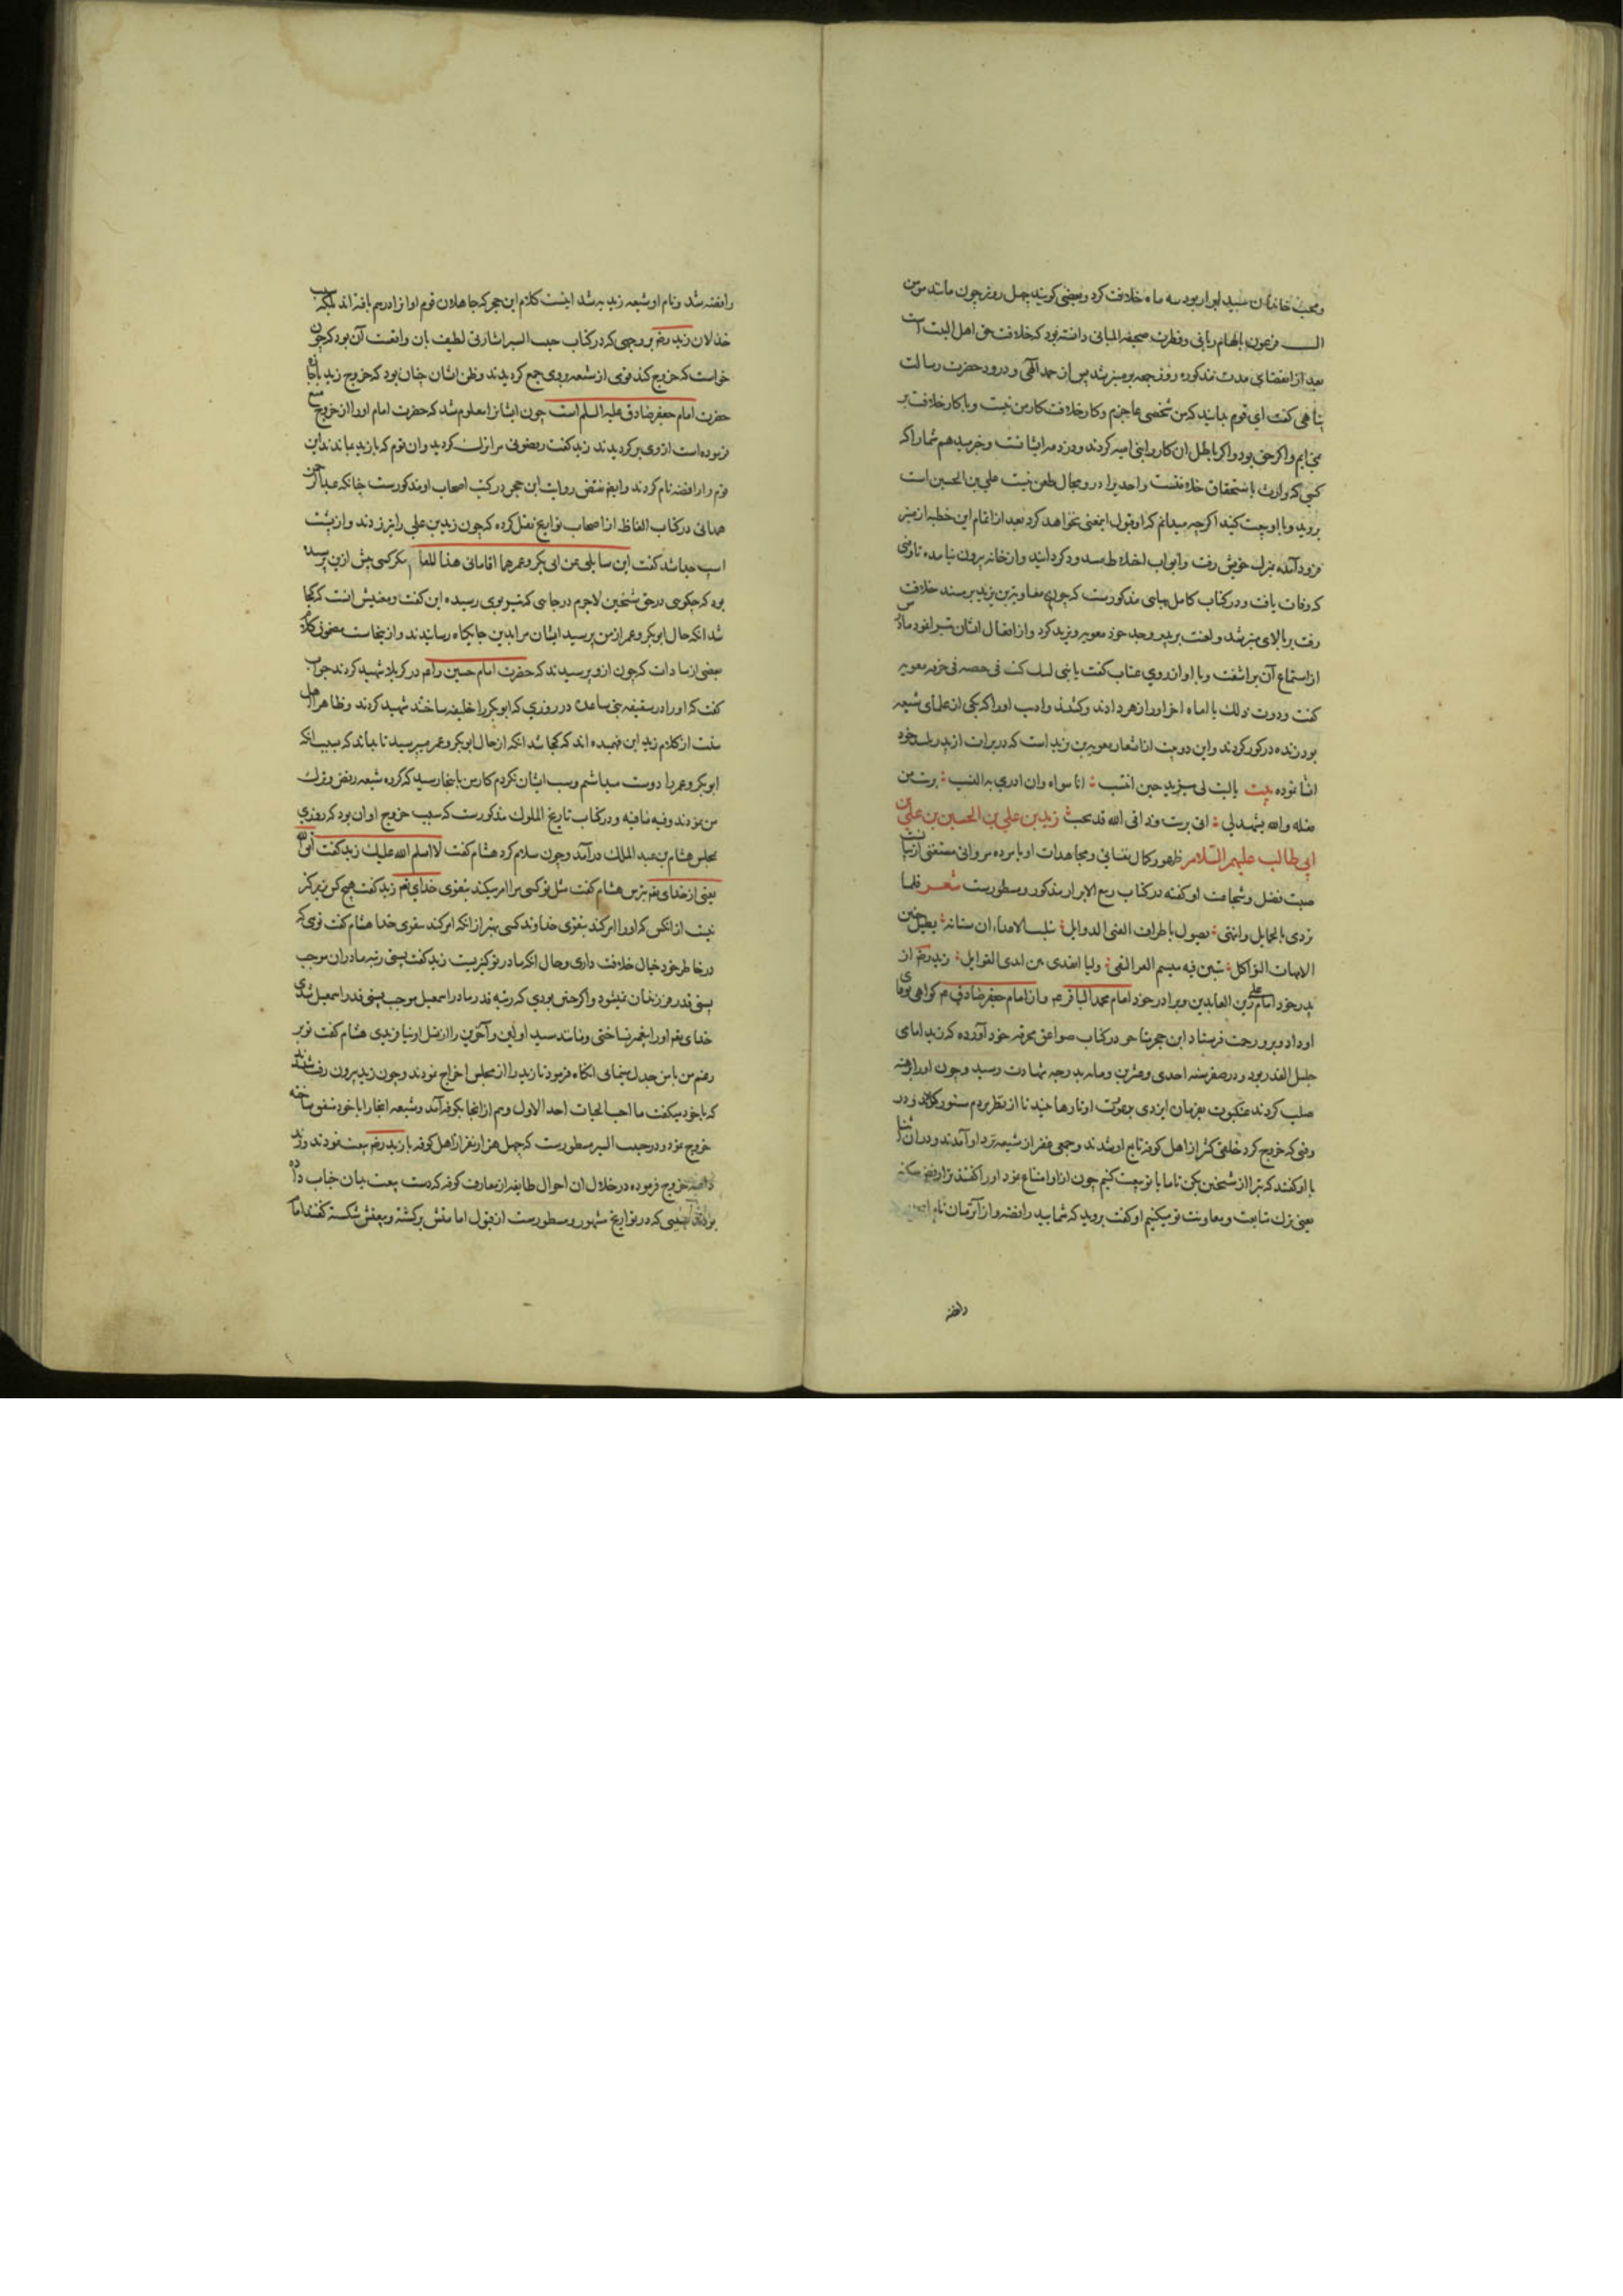 و محب خاندان سید ابرار بود سه ماه خلافت کرد و بعضی گویند چهل روز چون مانند مومن
ال فرعون بالهام ربانی و فطرت صحیفه دانسته بود که خلافت حق اهل البیت است
بعد از انقضای مدت مذکوره روز جمعه بر منبر شد پس از حمد الهی و درود حضرت رسالت
پناهی گفت ای قوم بدانید که من شخصی عاجزم و کار خلافت کار من نیست و با کار خلافت بر
نمی‌آیم و اگر حق بود و اگر باطل ان کار را بنی امیه کردند و وزر در ایشانست و خبر میدهم شما را که
کسی که وارث باستحقاق خلافتست واحدی را در او مجال طعن نیست علی بن الحسین است
بروید و با او بیعت کنید اگرچه میدانم که او قبول اینمعنی نخواهد کرد بعد از اتمام این خطبه از منبر
فرود آمده بمنزل خویش رفت و ابواب اختلاط مسدود گردانید و از خانه بیرون نیامده تا وقتی
که وفات یافت و در کتاب کامل بهایی مذکورست که چون معاویة بن یزید بر مسند خلافت
رفت بر بالای منبر شد و لعنت بر پدر و جد خود معویه و یزید کرد و از افعال ایشان تبرا نمود مادرش
از استماع آن براشفت و با او از روی عتاب گفت یا بنی لیتک کنت فی حیضة فی خرقه معویه
گفت وددت ذلک یا اماه اخر او را زهر دادند و کشتند و ادیب او را که یکی از علمای شیعه
بود زنده در گور کردند و این دو بیت از اشعار معویه بن یزید است که در برات از پدر پلید خود
انشا نموده بیت یا لیت لی بیزید حین انتسب انا سواه وان ازری به النسب برئت من
فعله والله یشهد لی انی برئت وذا فی الله قد یجب زید بن علی بن الحسین بن علی بن
ابی طالب علیهم السلام ظهور کمال نفسانی و مجاهدات او با مرده مروانی مستغنی از بیانست
صیت فضل و شجاعت او گفته در کتاب ربیع الابرار مذکور و مسطورست شعر فلما
تردی بالحمایل وانتهی یصول باطراف القنی الذوابل تبینت الاعداء ان سنانه یطیل حنین
الامهات الثواکل تبین فیه میسم العز والتقی ولیدا یفدی بین ایدی القوابل زید رض از
پدر خود امام علی زین العابدین و برادر خود امام محمد الباقر ع م و از امام جعفر صادق ع م گواهی بوفای
او داد و برو رحمت فرستاد ابن حجر متاخر در کتاب صواعق محرقه خود آورده که زید امامی
جلیل القدر بود و در صفر سنه احدی و عشرین و مایه بدرجه شهادت رسید و چون او را برهنه
صلب کردند عنکبوت بفرمان ایزدی بر عورت او تارها تنید تا از نظر مردم مستور گردد و در
وقتی که خروج کرد خلقی کثیر از اهل کوفه تابع او شدند و جمعی غفیر از شیعه نزد او آمدند و در ان اثنا
با او گفتند که تبرا از شیخین بکن تا ما با تو بیعت کنیم چون از او امتناع نمود او را گفتند نرفضک
یعنی ترک متابعت و معاونت تو میکنیم او گفت بروید که شمایید رافضه و از آن زمان نام
رافضه
رافضه شد و نام او شیعه زیدیه شد اینست کلام ابن حجر که جاهلان قوم او از ادرهم بافته اند
خذلان زید رض بر وجهی که در کتاب حبیب السیر اشارتی لطیف بان واقعست آن بود که چون
خواست که خروج کند قومی از شیعه بر وی جمع گردیدند و ظن ایشان چنان بود که خروج زید باجازه
حضرت امام جعفر صادق علیه السلم است چون ایشانرا معلوم شد که حضرت امام او را از خروج منع
فرموده است از وی برگردیدند زید گفت رفضونی مرا ترک کردید و ان قوم که با زید ماندند این
قوم را رافضه نام کردند و ایضا نقیض روایت ابن حجر در کتب اصحاب او مذکورست چنانکه عبدالرحمن
همدانی در کتاب الفاظ از اصحاب تواریخ نقل کرده که چون زید بن علی را تیر زدند و از پشت
اسب جدا شد گفت این سایلی عن ابی بکر و عمر هما اقامانی هذا المقام مگر کسی پیش ازین پرسیده
بود که چگویی در حق شیخین لاجرم در جایی که تیر بوی رسیده این گفت و معنیش انست که کجا
شد انکه حال ابوبکر و عمر از من پرسید ایشان مرا بدین جایگاه رسانیدند و از ینجاست مضمون کلام
بعضی از سادات که چون ازو پرسیدند که حضرت امام حسین را ع م در کربلا شهید کردند جواب
گفت که او را در سقیفه بنی ساعده در روزی که ابوبکر را خلیفه ساختند شهید کردند و ظاهرا اهل
سنت از کلام زید این فهمیده اند که کجا شد انکه از حال ابوبکر و عمر میپرسید تا بداند که بسبب انکه
ابوبکر و عمر را دوست میداشتم و سب ایشان نکردم کار من باینجا رسید که گروه شیعه رفض و ترک
من نمودند و فیه ما فیه و در کتاب تاریخ الملوک مذکورست که سبب خروج او ان بود که روزی
بمجلس هشام بن عبد الملک در آمد و چون سلام کرد هشام گفت لا سلم الله علیک زید گفت اتق الله
یعنی از خدای بترس هشام گفت مثل تو کسی مرا امر میکند بتقوی خدای تع زید گفت هیچکس بزرگتر
نیست از انکس که او را امر کند بتقوی خداوند کسی بهتر از انکه امر کند بتقوی خدا هشام گفت توی که
در خاطر خود خیال خلافت داری و حال انکه مادر تو کنیزیست زید گفت پستی رتبه مادران موجب
پستی قدر فرزندان نمیشود و اگر چنین بودی که رتبه قدر مادر اسمعیل موجب پستی قدر اسمعیل شدی
خدای تع او را پیغمبر نساختی و مانند سید اولین و آخرین را از نسل او نیافریدی هشام گفت تو بر
رغم من با من جدل مینمایی انگاه فرمود تا زید را از مجلس اخراج نمودند و چون زید بیرون رفت شنیدند
که با خود میگفت ما احب الحیات احد الا ذل وهم از انجا بکوفه آمد و شیعه انجا را با خود متفق ساخته
خروج نمود و در حبیب السیر مسطورست که چهل هزار نفر از اهل کوفه با زید رض بیعت نمودند و زید
داعیه خروج فرموده در خلال ان احوال طایفه از معارف کوفه که دست بیعت بدان جناب داده
بودند که در تواریخ مشهور و مسطورست از قبول امامتش برگشته و بیعتش شکسته گفتند امام